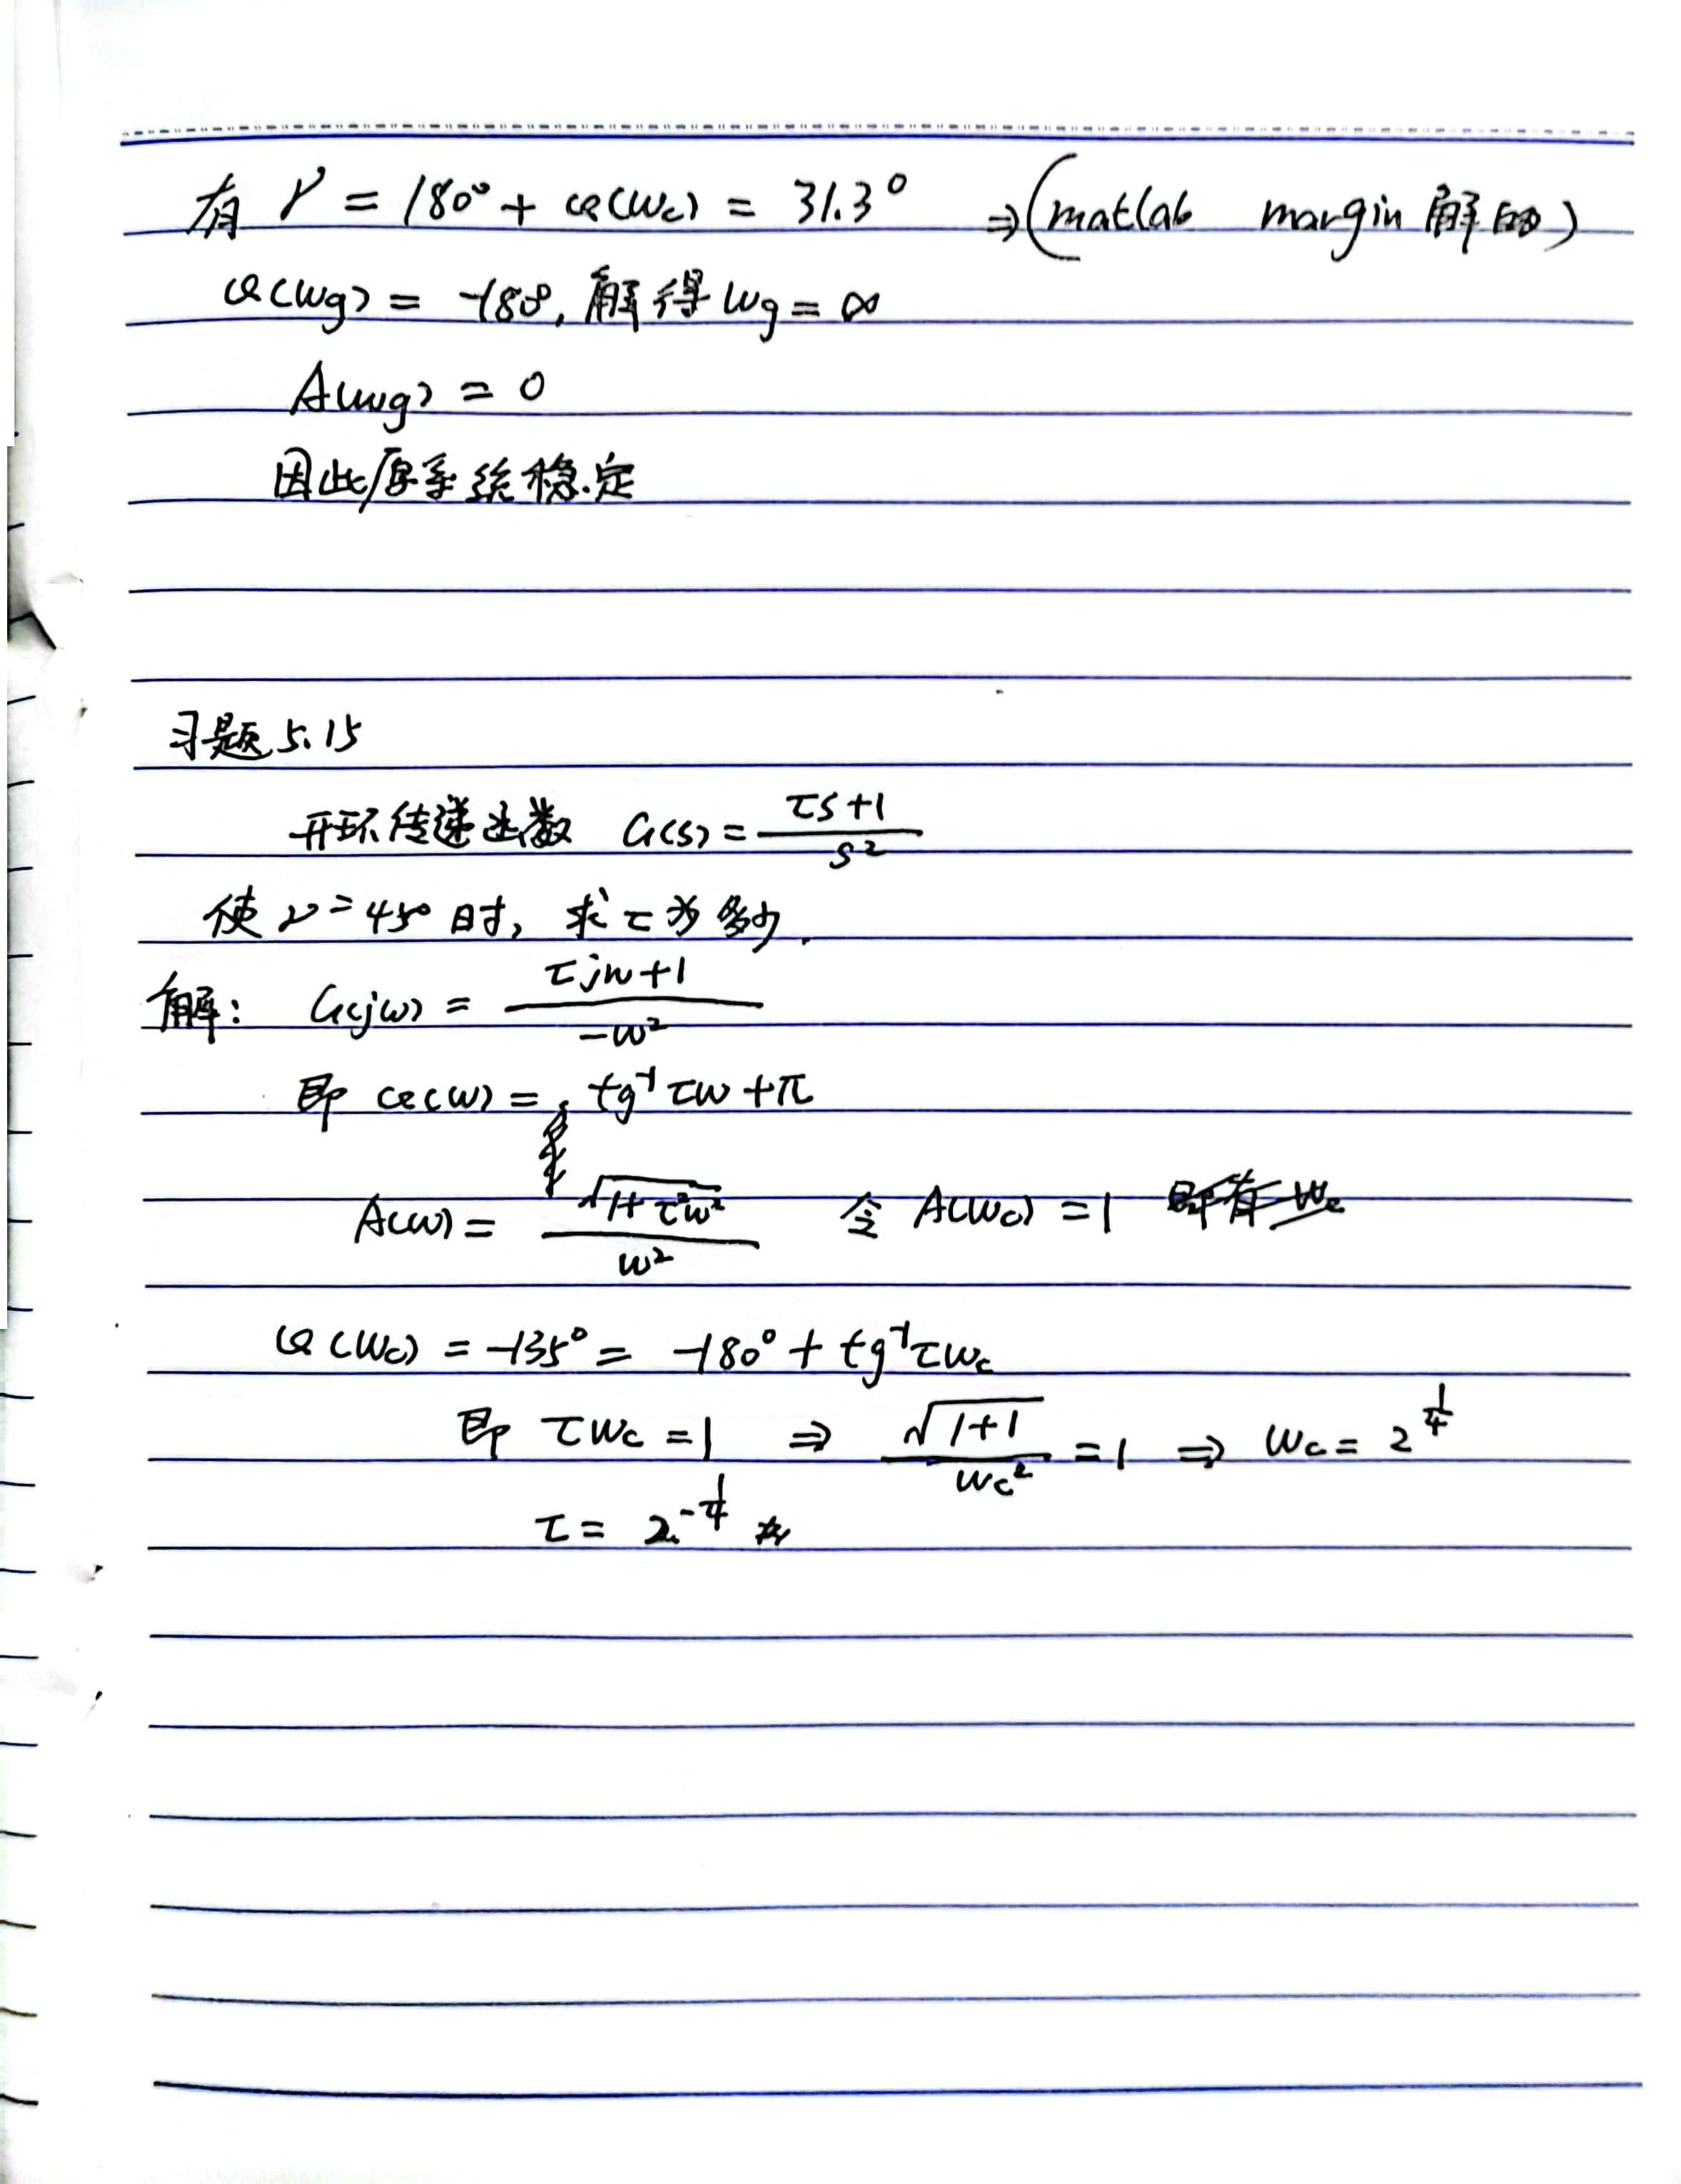 有 γ = 180° + φ(ωc) = 31.3° ⇒ (matlab margin 解的)
φ(ωg) = -180°, 解得 ωg = ∞
A(ωg) = 0
因此原系统稳定
习题 5.15
开环传递函数 G(s) = (τs+1)/s²
使 γ = 45° 时, 求 τ 为多少.
解: G(jω) = (τjω+1)/(-ω²)
即 φ(ω) = tg⁻¹ τω + π
A(ω) = √(1+τ²ω²)/ω² 令 A(ωc) = 1 即有 ωc
φ(ωc) = -135° = -180° + tg⁻¹ τωc
即 τωc = 1 ⇒ √(1+1)/ωc² = 1 ⇒ ωc = 2^(1/4)
τ = 2^(-1/4)